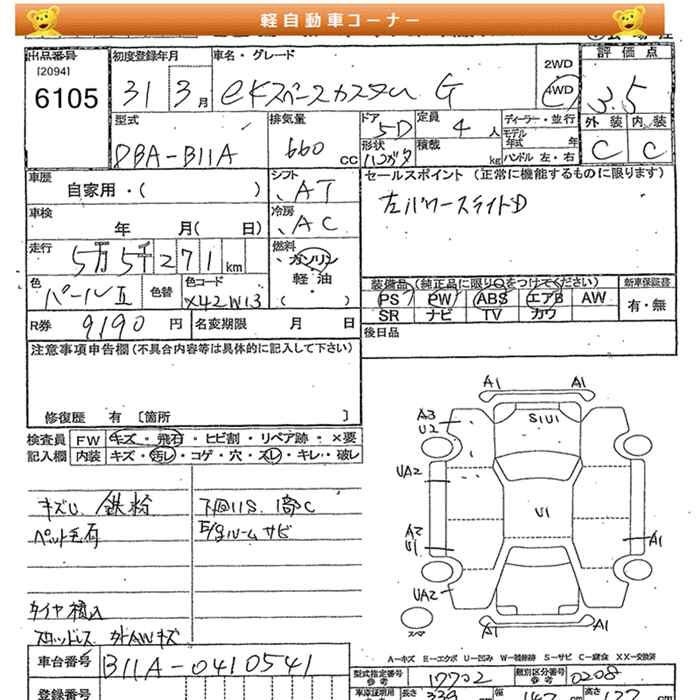 軽自動車コーナー
出品番号
[2094]
6105
初度登録年月
31 3月
車名・グレード
eKスペースカスタム G
2WD
4WD
評価点
3.5
型式
DBA-B11A
排気量
660 cc
ドア
5D
形状
定員
4人
積載
kg
ディーラー・並行
モデル
年式 年
ハンドル 左・右
外装 内装
C C
車歴
自家用・( )
シフト
AT
車検
年 月( 日)
冷房
AC
セールスポイント (正常に機能するものに限ります)
左パワースライドD
走行
5万5千271km
燃料
ガソリン
軽油
( )
色
パールII
色替
色コード
X42W13
装備品(純正品に限り○をつけてください)
PS PW ABS エアB AW
SR ナビ TV カワ
新車保証書
有・無
R券
9190円
名変期限 月 日
後日品
注意事項申告欄(不具合内容等は具体的に記入して下さい)
修復歴 有 [箇所 ]
検査員
記入欄
FW キズ・飛石・ヒビ割・リペア跡・×要
内装 キズ・汚レ・コゲ・穴・スレ・キレ・破レ
キズU 鉄粉
ペット毛有
下回りS 1部C
E/gルーム サビ
タイヤ積込
スタッドレス 外AWキズ
A1 A1
A3
U2
S1U1
UA2
U1
A2
U1
A1
UA2
A1 A1
スペア
A-キズ E-エクボ U-凹み W-補修跡 S-サビ C-腐食 XX-交換済
車台番号
B11A-0410541
型式指定番号
参考
17702
類別区分番号
参考
0208
登録番号
長さ 339 cm
幅 147 cm
高さ